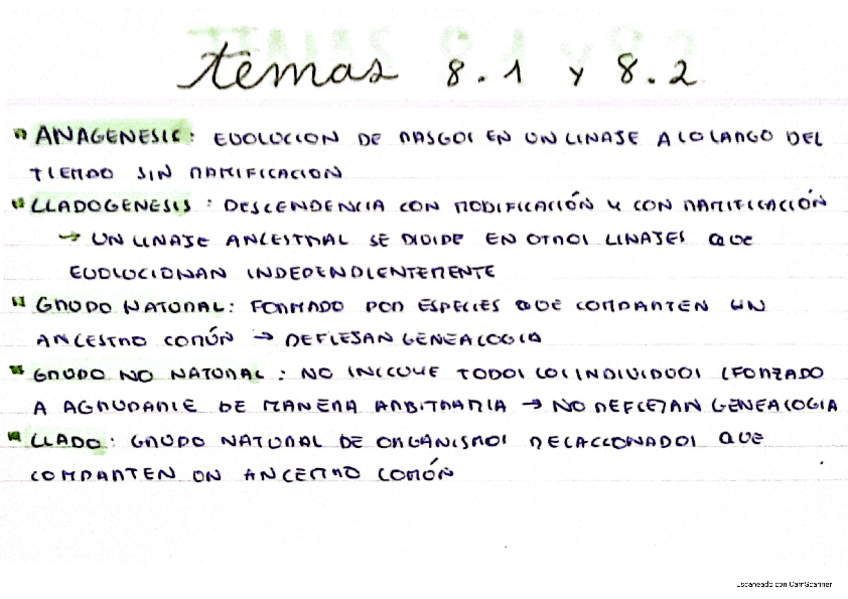 temas 8.1 y 8.2
ANAGENESIS: EVOLUCION DE RASGOS EN UN LINAJE A LO LARGO DEL
TIEMPO SIN RAMIFICACION
CLADOGENESIS: DESCENDENCIA CON MODIFICACIÓN Y CON RAMIFICACIÓN
→ UN LINAJE ANCESTRAL SE DIVIDE EN OTROS LINAJES QUE
EVOLUCIONAN INDEPENDIENTEMENTE
GRUPO NATURAL: FORMADO POR ESPECIES QUE COMPARTEN UN
ANCESTRO COMÚN → REFLEJAN GENEALOGIA
GRUPO NO NATURAL: NO INCLUYE TODOS LOS INDIVIDUOS (FORZADO
A AGRUPARSE DE MANERA ARBITRARIA → NO REFLEJAN GENEALOGIA
CLADO: GRUPO NATURAL DE ORGANISMOS RELACCIONADOS QUE
COMPARTEN UN ANCESTRO COMÚN
Escaneado con CamScanner